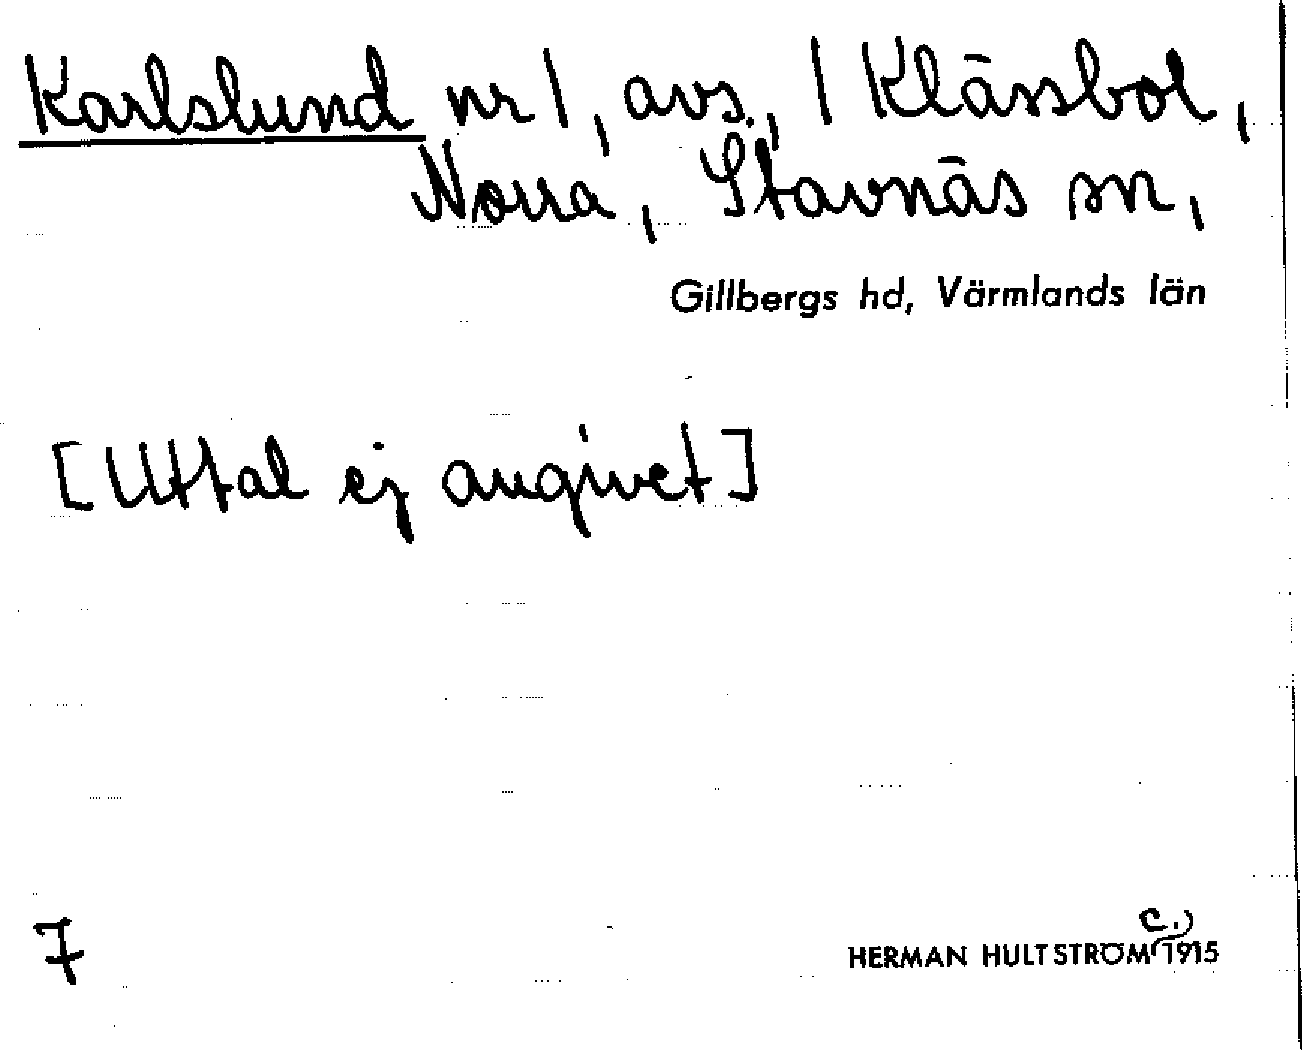 Karlslund nr 1, avs., 1 Klässbol,
Norra, Stavnäs sn,
Gillbergs hd, Värmlands län
[Uttal ej angivet]
7
HERMAN HULTSTRÖM c. 1915